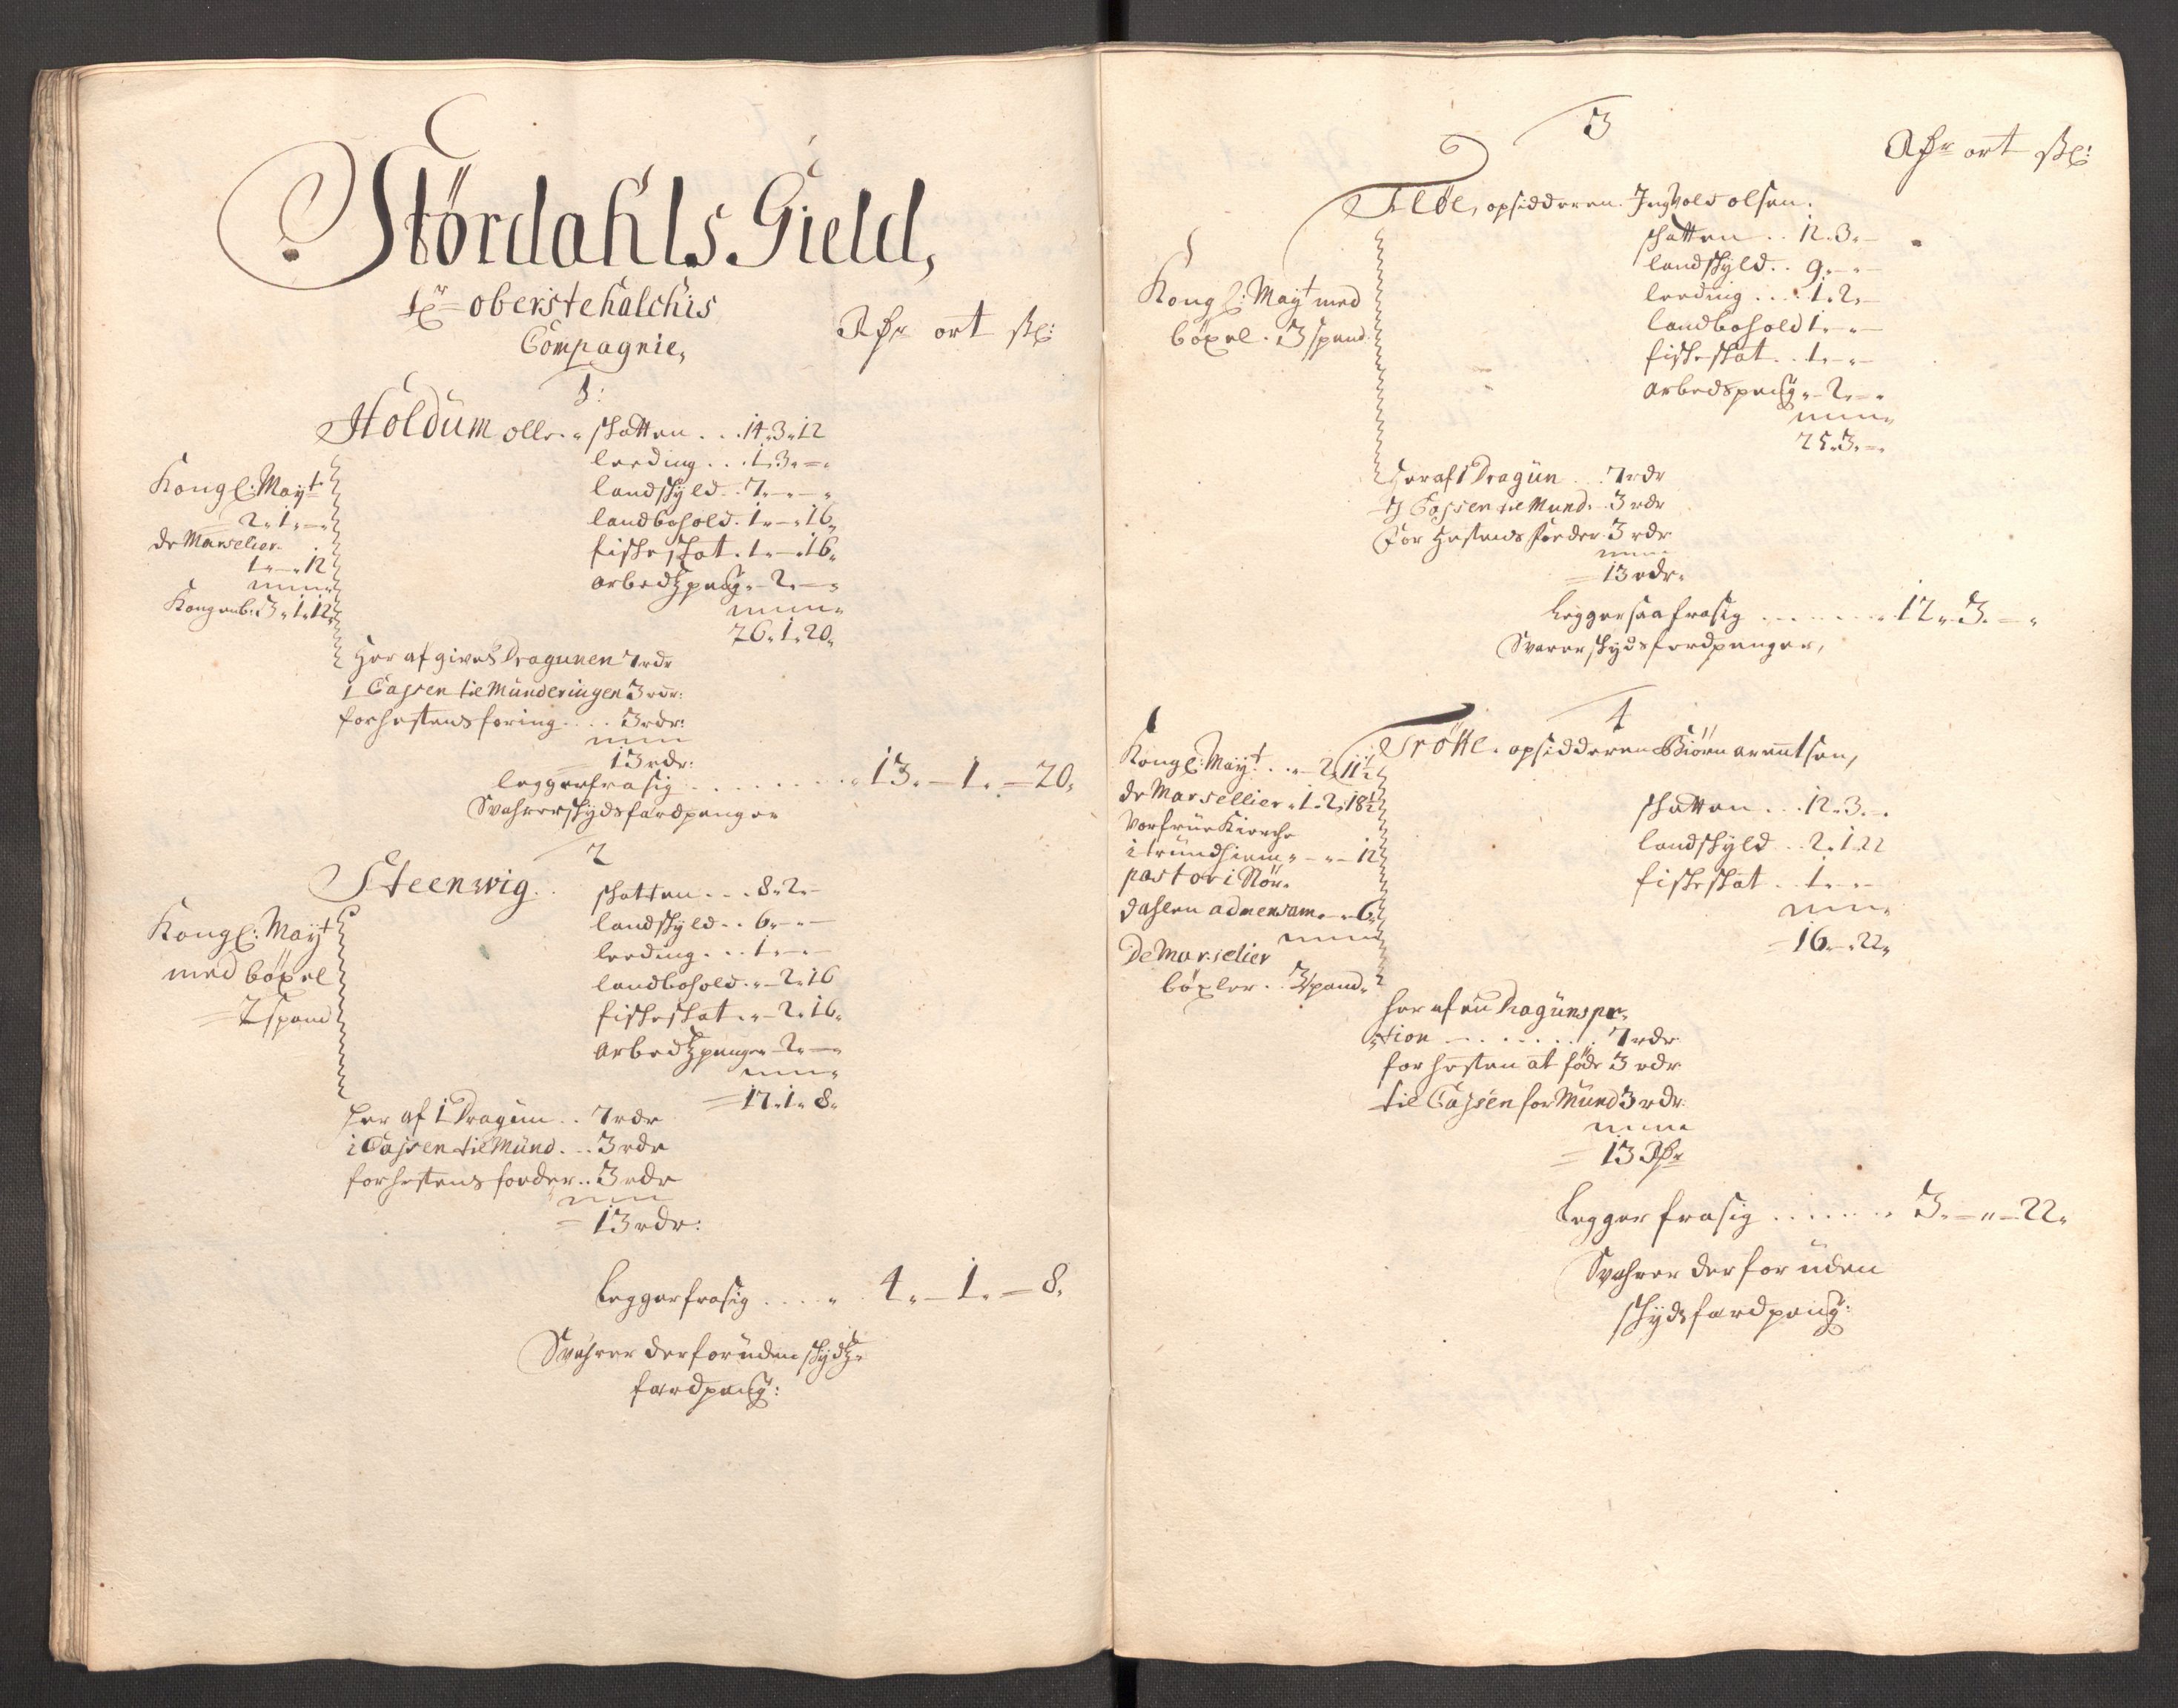 Stördahls Gield,
Hr oberste Kalckris
Compagnie,
Rdr ort sk:
1:
Holdum olle. skatten . . . 14 . 3 . 12
leeding . . . 1 . 3 . – .
landskyld . . 7 . – . – .
landbohold . 1 . – . 16 .
fiskeskat . 1 . – . 16 .
arbedtzpeng . – 2 . – .
26 . 1 . 20 .
Kongl: Mayt
2 . 1 . – .
de Marselier
1 . – . 12
Kongen b: 3 . 1 . 12 .
Her af gives Dragunen 7 rdr
i Cassen til Münderingen 3 rdr:
for hestens foring . . . 3 rdr:
13 rdr:
legger fra sig . . . . . . . . . 13 . – 1 . – 20 .
Svahrer skydsfærdpenger
2
Steenwig . . skatten . . . 8 . 2 . –
landskyld . . 6 . – . –
leeding . . . 1 . – . –
landbohold . – 2 . 16
fiskeskat . – 2 . 16 .
Arbedtzpenger – 2 . – .
= 17 . 1 . 8 .
Kongl: Mayt
med böxel
= 2 spand
her af 1 Dragun . . 7 rdr
i Cassen til Münd . . . 3 rdr
for hestens foeder . . 3 rdr
= 13 rdr:
legger fra sig . . . . 4 . – 1 . – 8 .
Svahrer der foruden skydtz-
færdpeng:
3
Rdr ort sk:
Fløe, opsidderen Ingvold olsen .
skatten . . 12 . 3 . –
landskyld . . 9 . – . –
leeding . . . 1 . 2 . –
landbohold 1 . – . –
fiskeskat . . 1 . – . –
arbedspeng . – 2 . – .
25 . 3 . – .
Kongl: Mayt med
böxel . 3 spand
her af 1 Dragün . . 7 rdr
I Cassen til Mund . . 3 rdr
For Hestens Foeder . 3 rdr
= 13 rdr .
legger saa fra sig . . . . . . . 12 . – 3 . – .
Svarer skydsferdpenger,
4
Trøtte . opsidderen Biørn arentsen,
Kongl: Mayt . . . – 2 . 11½
de Marsellier . 1 . 2 . 18½
Vor früe Kierche
i trundhiem . – . – 12
pastor i Stör-
dahlen ad mensam . – . 6
De Marselier
böxler . . 3 spand .
skatten . . . 12 . 3 . – .
landskyld . . 2 . 1 . 22
fiskeskat . . 1 . – . –
= 16 . – . 22 .
her af en Dragünspr
tion . . . . . . . 7 rdr
for hesten at föde 3 rdr
til Cassen for Münd 3 rdr.
= 13 Rdr
legger fra sig . . . . . . 3 . – . – 22 .
Svahrer der foruden
skydsfærdpeng: